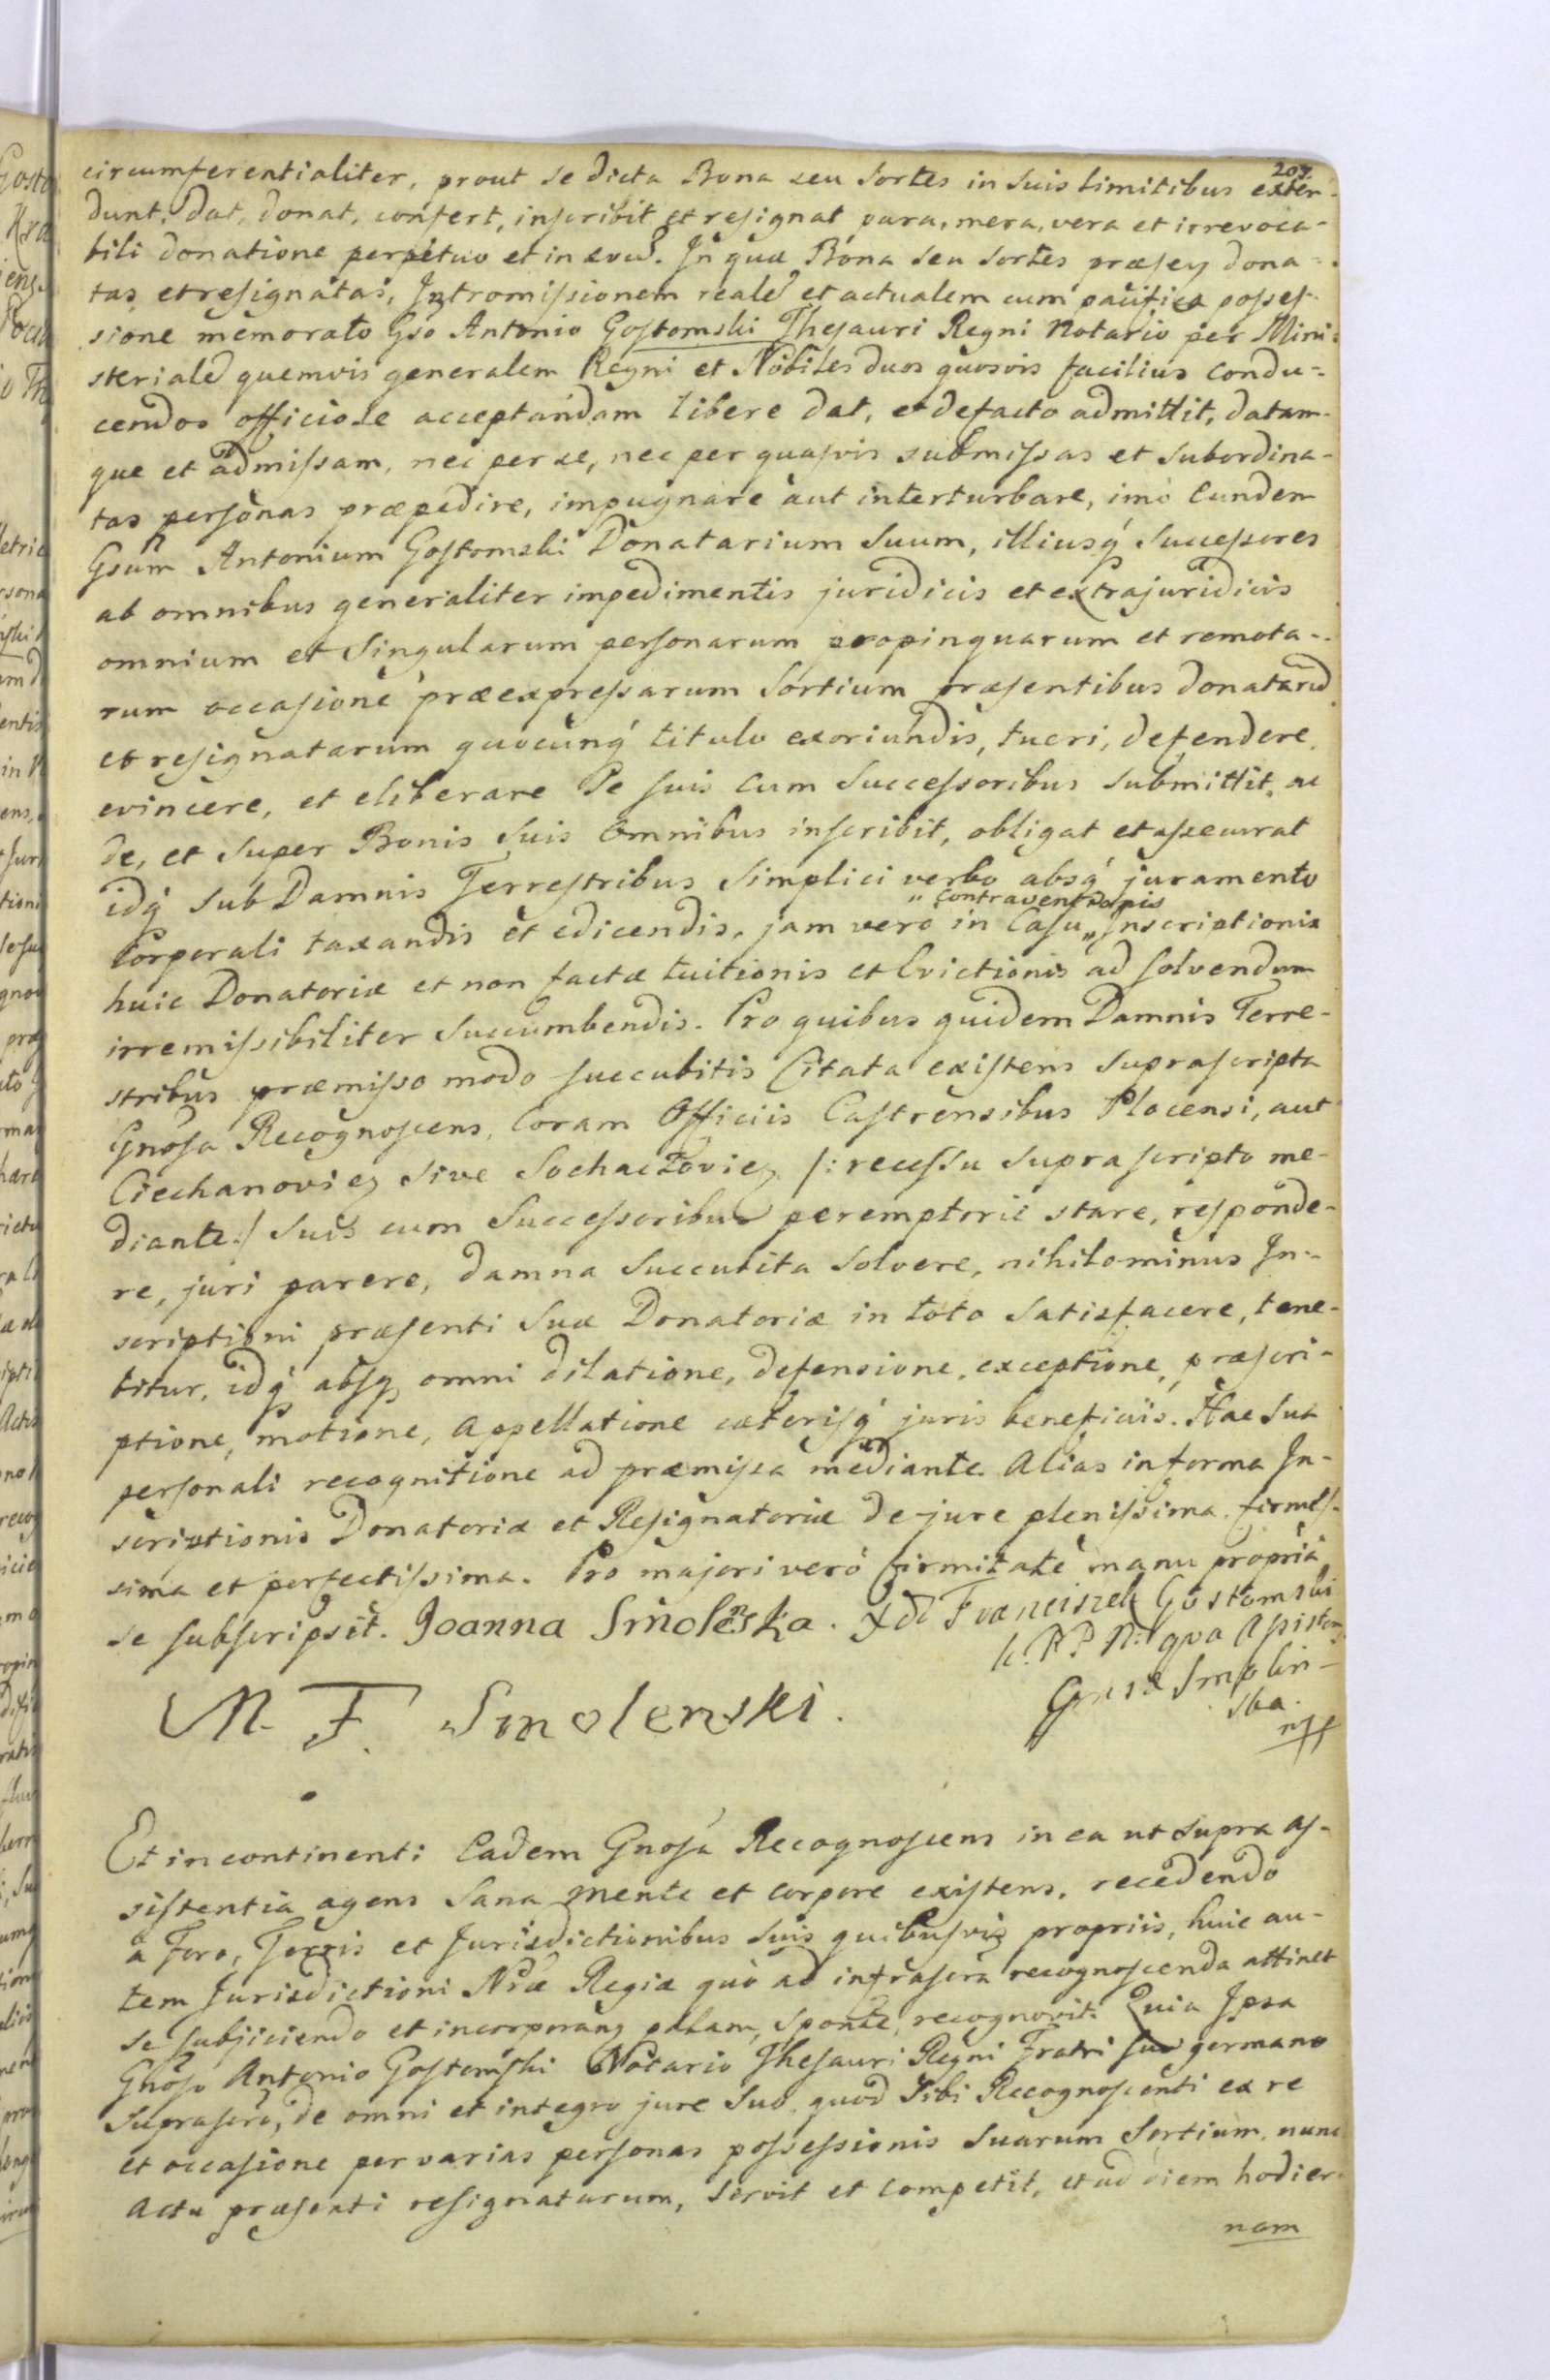 207.
circumferentialiter, prout se dicta Bona seu Sortes in suis limitibus exten-
dunt, dat, donat, confert, inscribit et resignat pura, mera, vera et irrevoca-
bili donatione perpetuo et in ævũ. In quæ Bona seu Sortes præsen dona-
tas et resignatas, Intromissionem realẽ et actualem cum pacifica posses-
sione memorato Gso Antonio Gostomski Thesauri Regni Notario per Mini-
sterialẽ quemvis generalem Regni et Nobiles duos quosvis facilius condu-
cendos officiose acceptandam libere dat, et defacto admittit, datam-
que et admissam, nec per se, nec per quasvis submissas et subordina-
tas personas præpedire, impugnare aut interturbare, imò Eundem
Gsum Antonium Gostomski Donatarium Suum, illiusq́ Successores
ab omnibus generaliter impedimentis juridicis et extrajuridicis
omnium et Singularum personarum propinquarum et remota-
rum occasione præexpressarum Sortium præsentibus donatarũ
et resignatarum quocunq́ titulo exoriundis, tueri, defendere,
evincere, et eliberare Se suis cum Successoribus submittit, ac
de, et super Bonis suis Omnibus inscribit, obligat et assecurat
idq́ sub Damnis Terrestribus Simplici verbo absq́ juramento
" Contraventionis
Corporali taxandis et edicendis, jam vero in Casu " Inscriptionis
huic Donatoriæ et non factæ tuitionis et Evictionis ad solvendum
irremissibiliter Succumbendis. Pro quibus quidem Damnis Terre-
stribus præmisso modo succubitis Citata existens suprascripta
Gnosa Recognoscens, Coram Officiis Castrensibus Plocensi, aut
Ciechanovien sive Sochaczovien /: recessu suprascripto me-
diante :/ suis cum Successoribus peremptoriè stare, responde-
re, juri parere, damna Succubita solvere, nihilominus In-
scriptioni præsenti suæ Donatoriæ in toto satisfacere, tene-
bitur, idq́ absq́ omni dilatione, defensione, exceptione, præscri-
ptione, motione, Appellatione cæterisq́ juris beneficiis. Hac sua
personali recognitione ad præmissa mediante. Alias in forma In-
scriptionis Donatoriæ et Resignatoriæ de jure plenissima, firmis-
sima et perfectissima. Pro majori verò firmitate manu propria
se subscripsit. Joanna Smolenska. Franciszek Gostomski
qua Assistens
Smolin-
ska.
M. F. Smolenski.
Et incontinenti Eadem Gnosa Recognoscens in ea ut supra as-
sistentia agens Sana mente et corpore existens, recedendo
à Foro, Terris et Jurisdictionibus suis quibusvis propriis, huic au-
tem Jurisdictioni Nræ Regiæ quò ad infrascra recognoscenda attinet
se subjiciendo et incorporans palam, sponte, recognovit. Quia Ipsa
Gnoso Antonio Gostomski Notario Thesauri Regni Fratri suo germano
suprascro, de omni et integro jure suo, quod Sibi Recognoscenti ex re
et occasione per varias personas possessionis Suarum Sortium, nunc
Actu præsenti resignatarum, servit et competit, et ad diem hodier-
nam